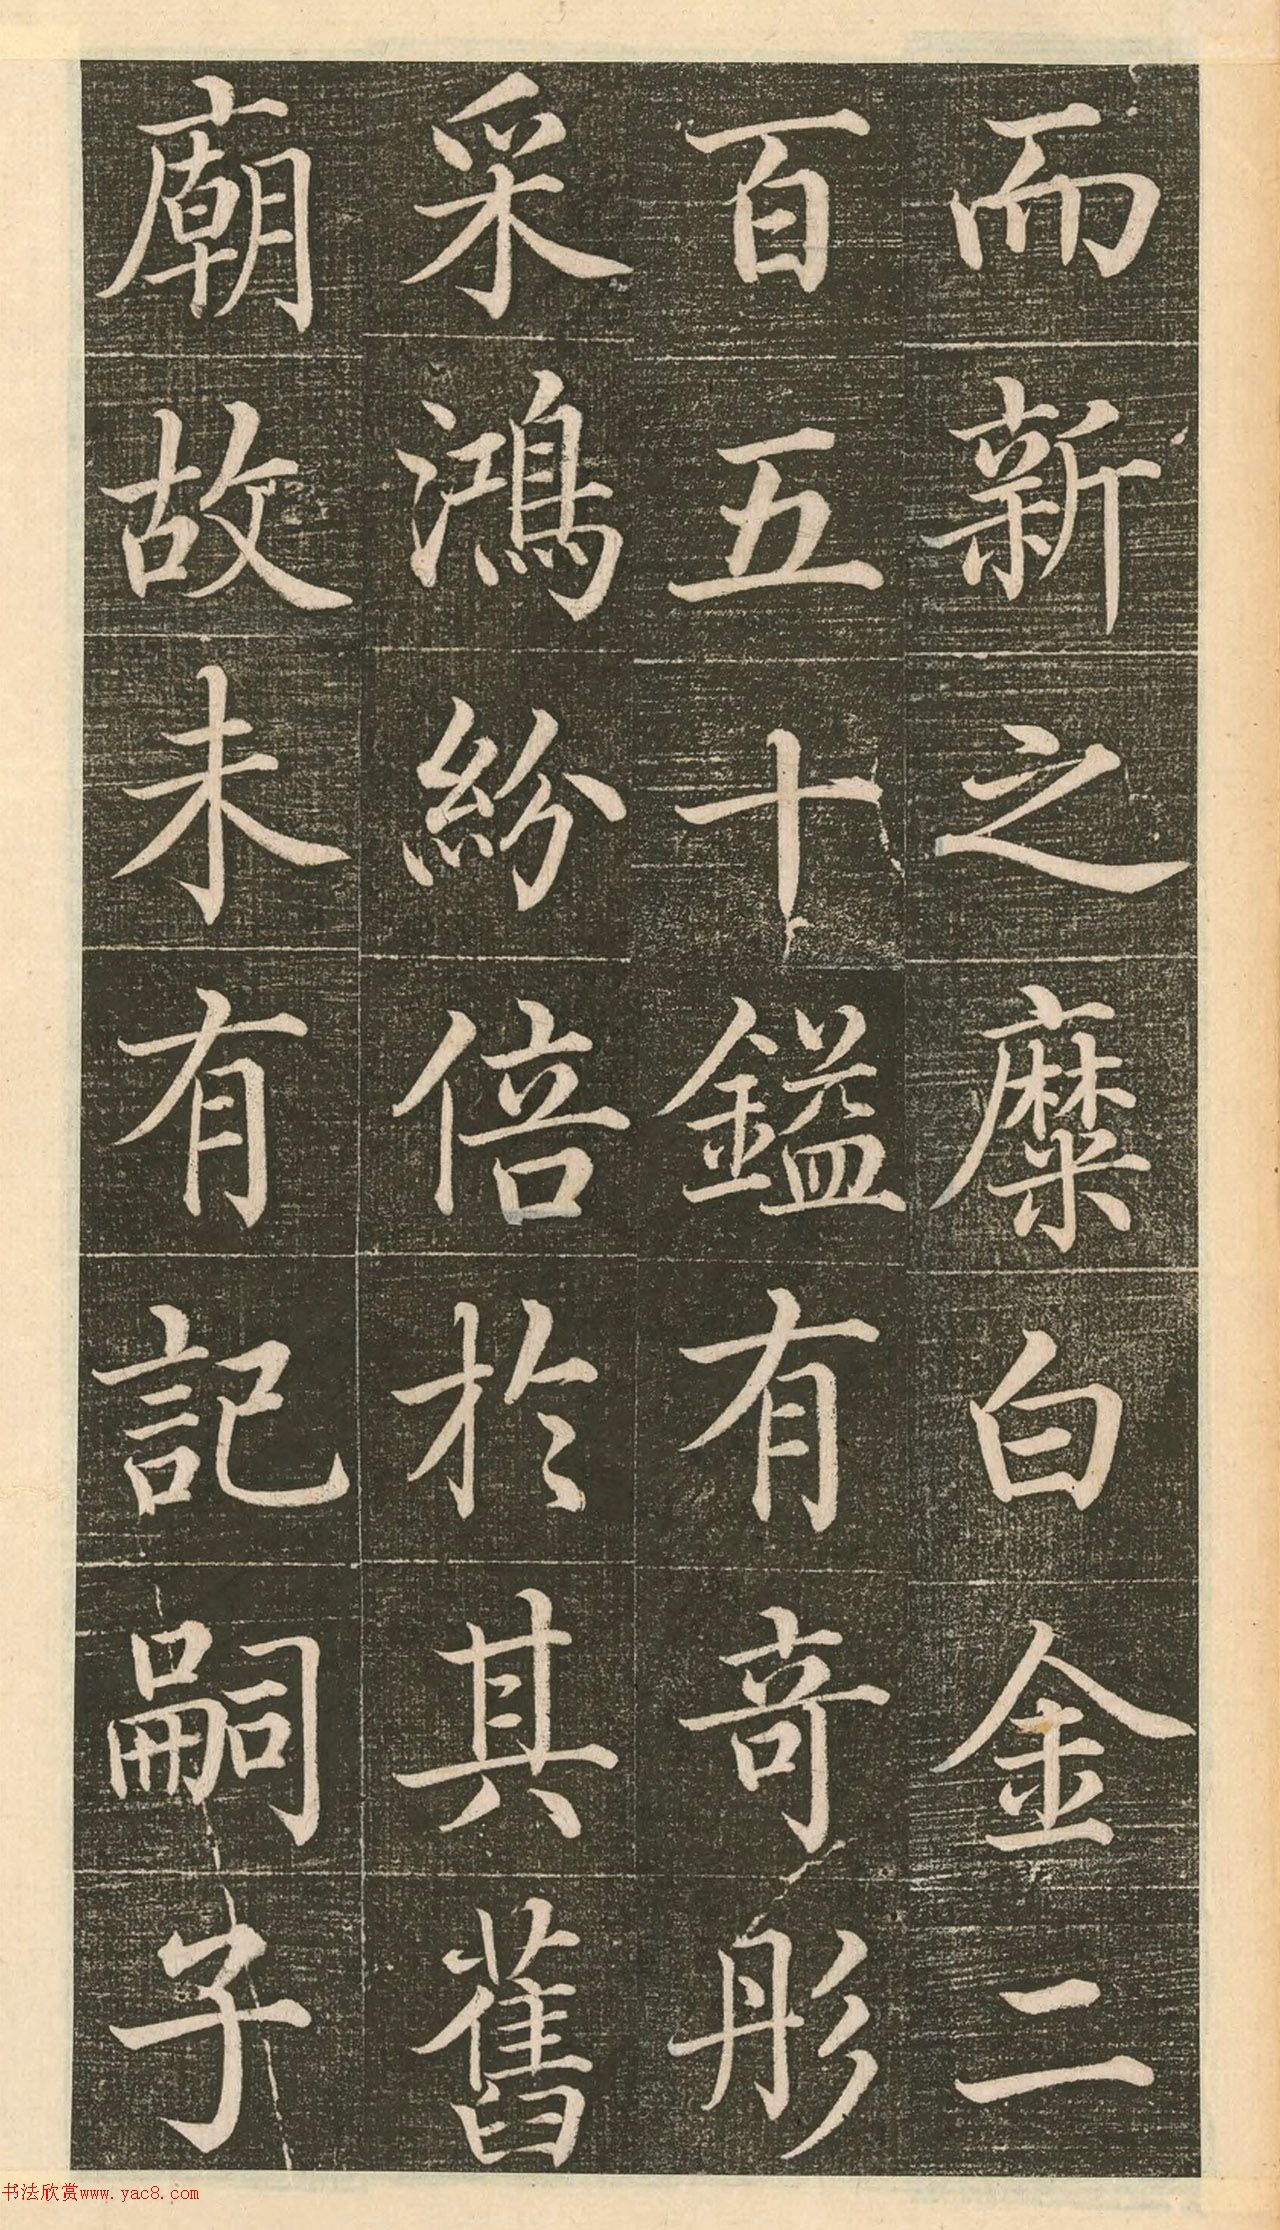 而新之糜白金二
百五十鎰有奇彤
采鴻紛倍於其舊
廟故未有記嗣子
书法欣赏www.yac8.com